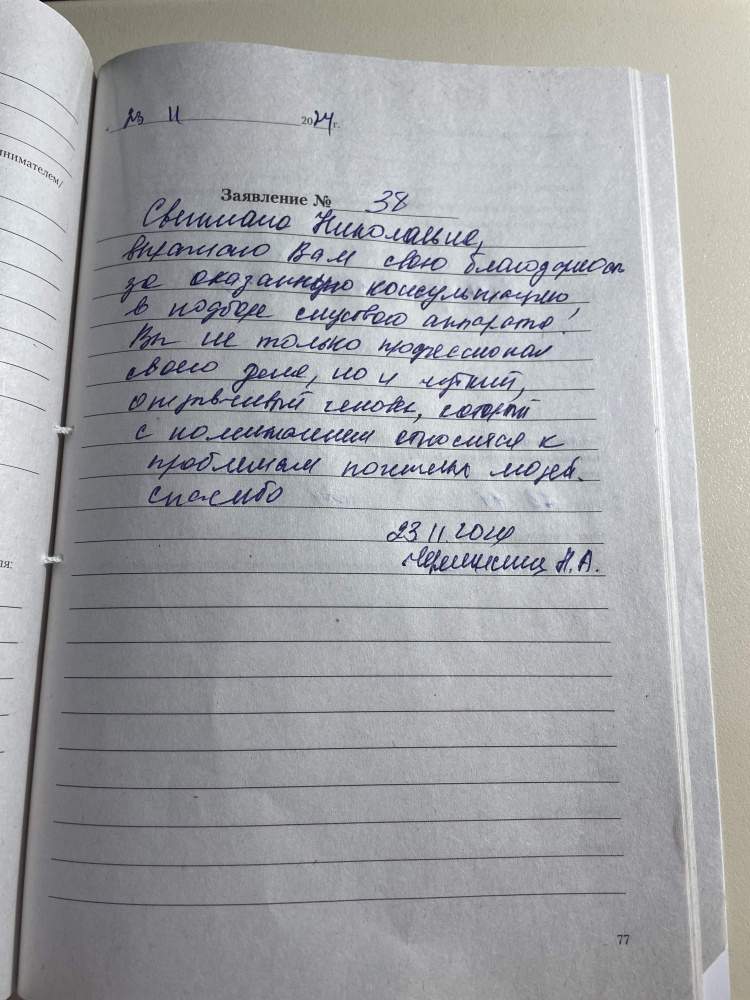 23 11 2024 г.
инимателем/
Заявление № 38
Светлана Николаевна,
выражаю Вам свою благодарность
за оказанную консультацию
в подборе слухового аппарата!
Вы не только профессионал
своего дела, но и чуткий,
отзывчивый человек, который
с пониманием относится к
проблемам пожилых людей.
Спасибо
23 11 2024
Н.А.
ля:
77